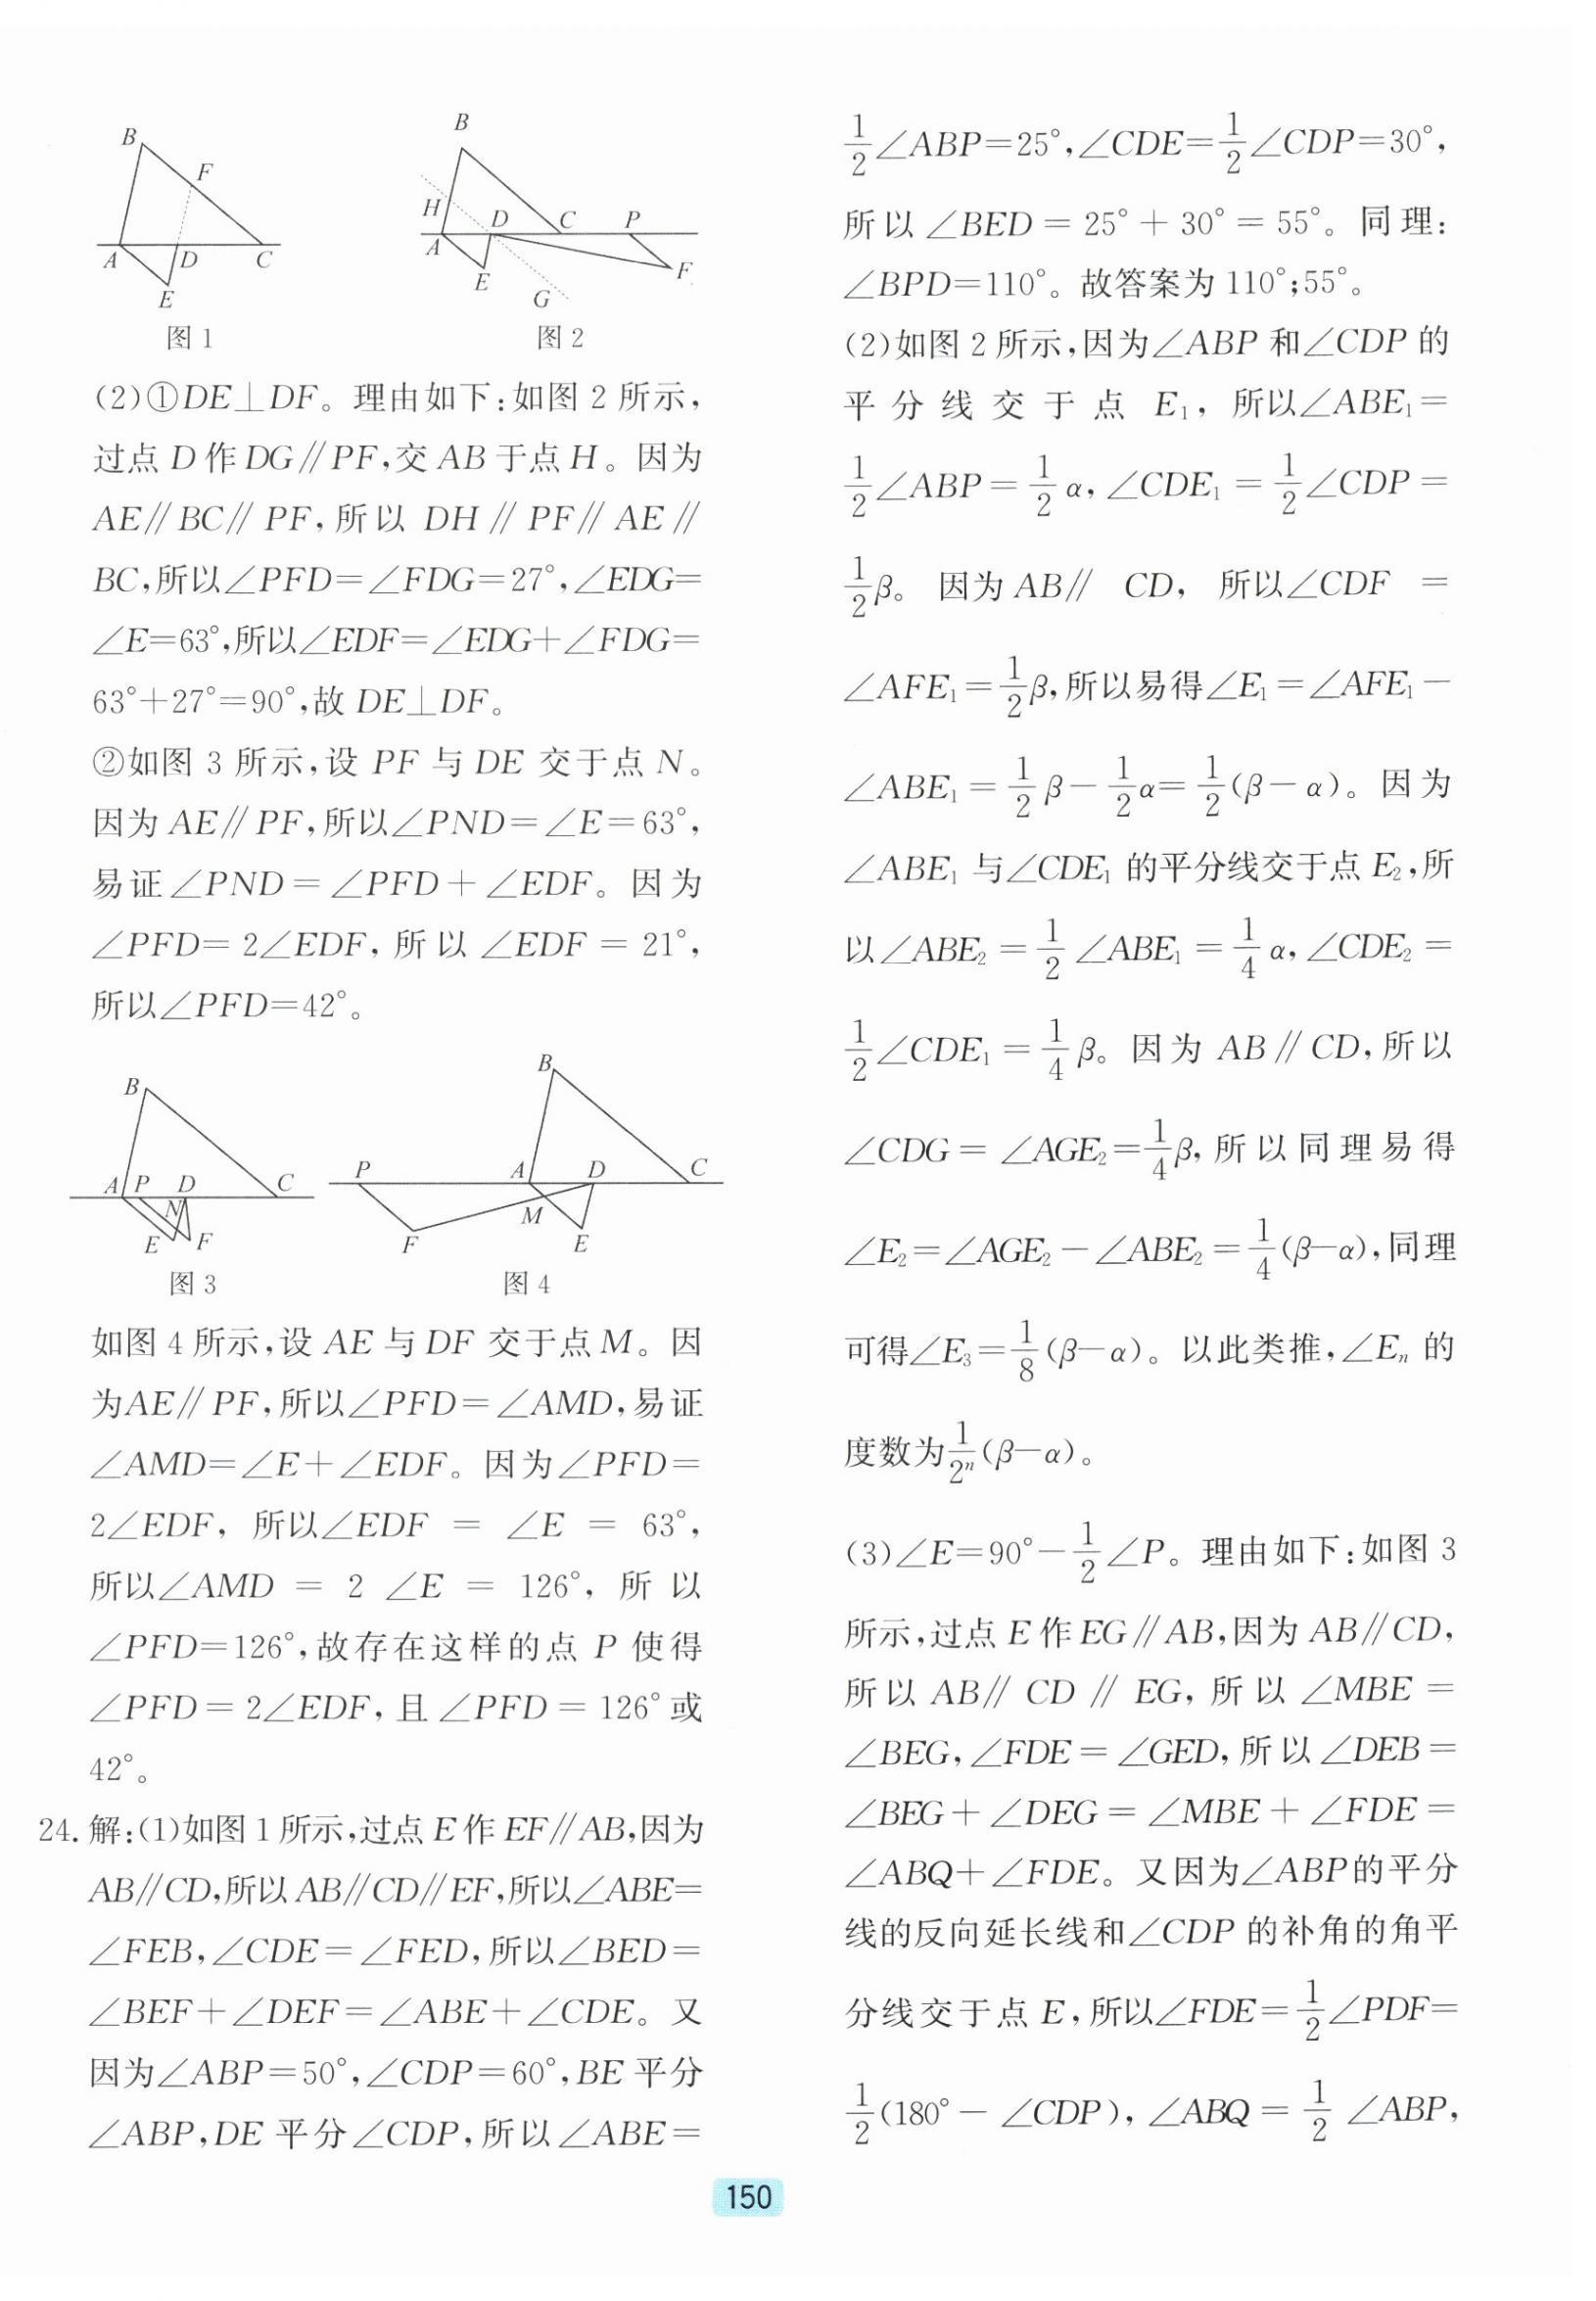 B
F
A
D
C
E
图 1
B
H
D
C
P
A
E
G
F
图 2
(2)①DE⊥DF。理由如下:如图 2 所示,
过点 D 作 DG∥PF,交 AB 于点 H。因为
AE∥BC∥PF,所以 DH∥PF∥AE∥
BC,所以∠PFD=∠FDG=27°,∠EDG=
∠E=63°,所以∠EDF=∠EDG+∠FDG=
63°+27°=90°,故 DE⊥DF。
②如图 3 所示,设 PF 与 DE 交于点 N。
因为 AE∥PF,所以∠PND=∠E=63°,
易证∠PND=∠PFD+∠EDF。因为
∠PFD=2∠EDF,所以∠EDF=21°,
所以∠PFD=42°。
B
A
P
D
C
N
E
F
图 3
B
P
A
D
C
M
F
E
图 4
如图 4 所示,设 AE 与 DF 交于点 M。因
为AE∥PF,所以∠PFD=∠AMD,易证
∠AMD=∠E+∠EDF。因为∠PFD=
2∠EDF,所以∠EDF=∠E=63°,
所以∠AMD=2∠E=126°,所以
∠PFD=126°,故存在这样的点 P 使得
∠PFD=2∠EDF,且∠PFD=126°或
42°。
24. 解:(1)如图 1 所示,过点 E 作 EF∥AB,因为
AB∥CD,所以 AB∥CD∥EF,所以∠ABE=
∠FEB,∠CDE=∠FED,所以∠BED=
∠BEF+∠DEF=∠ABE+∠CDE。又
因为∠ABP=50°,∠CDP=60°,BE 平分
∠ABP,DE 平分∠CDP,所以∠ABE=
1/2∠ABP=25°,∠CDE=1/2∠CDP=30°,
所以∠BED=25°+30°=55°。同理:
∠BPD=110°。故答案为 110°;55°。
(2)如图 2 所示,因为∠ABP 和∠CDP 的
平分线交于点 E₁,所以∠ABE₁=
1/2∠ABP=1/2α,∠CDE₁=1/2∠CDP=
1/2β。因为 AB∥CD,所以∠CDF=
∠AFE₁=1/2β,所以易得∠E₁=∠AFE₁-
∠ABE₁=1/2β-1/2α=1/2(β-α)。因为
∠ABE₁ 与∠CDE₁ 的平分线交于点 E₂,所
以∠ABE₂=1/2∠ABE₁=1/4α,∠CDE₂=
1/2∠CDE₁=1/4β。因为 AB∥CD,所以
∠CDG=∠AGE₂=1/4β,所以同理易得
∠E₂=∠AGE₂-∠ABE₂=1/4(β-α),同理
可得∠E₃=1/8(β-α)。以此类推,∠Eₙ 的
度数为1/2ⁿ(β-α)。
(3)∠E=90°-1/2∠P。理由如下:如图 3
所示,过点 E 作 EG∥AB,因为 AB∥CD,
所以 AB∥CD∥EG,所以∠MBE=
∠BEG,∠FDE=∠GED,所以∠DEB=
∠BEG+∠DEG=∠MBE+∠FDE=
∠ABQ+∠FDE。又因为∠ABP的平分
线的反向延长线和∠CDP 的补角的角平
分线交于点 E,所以∠FDE=1/2∠PDF=
1/2(180°-∠CDP),∠ABQ=1/2∠ABP,
150